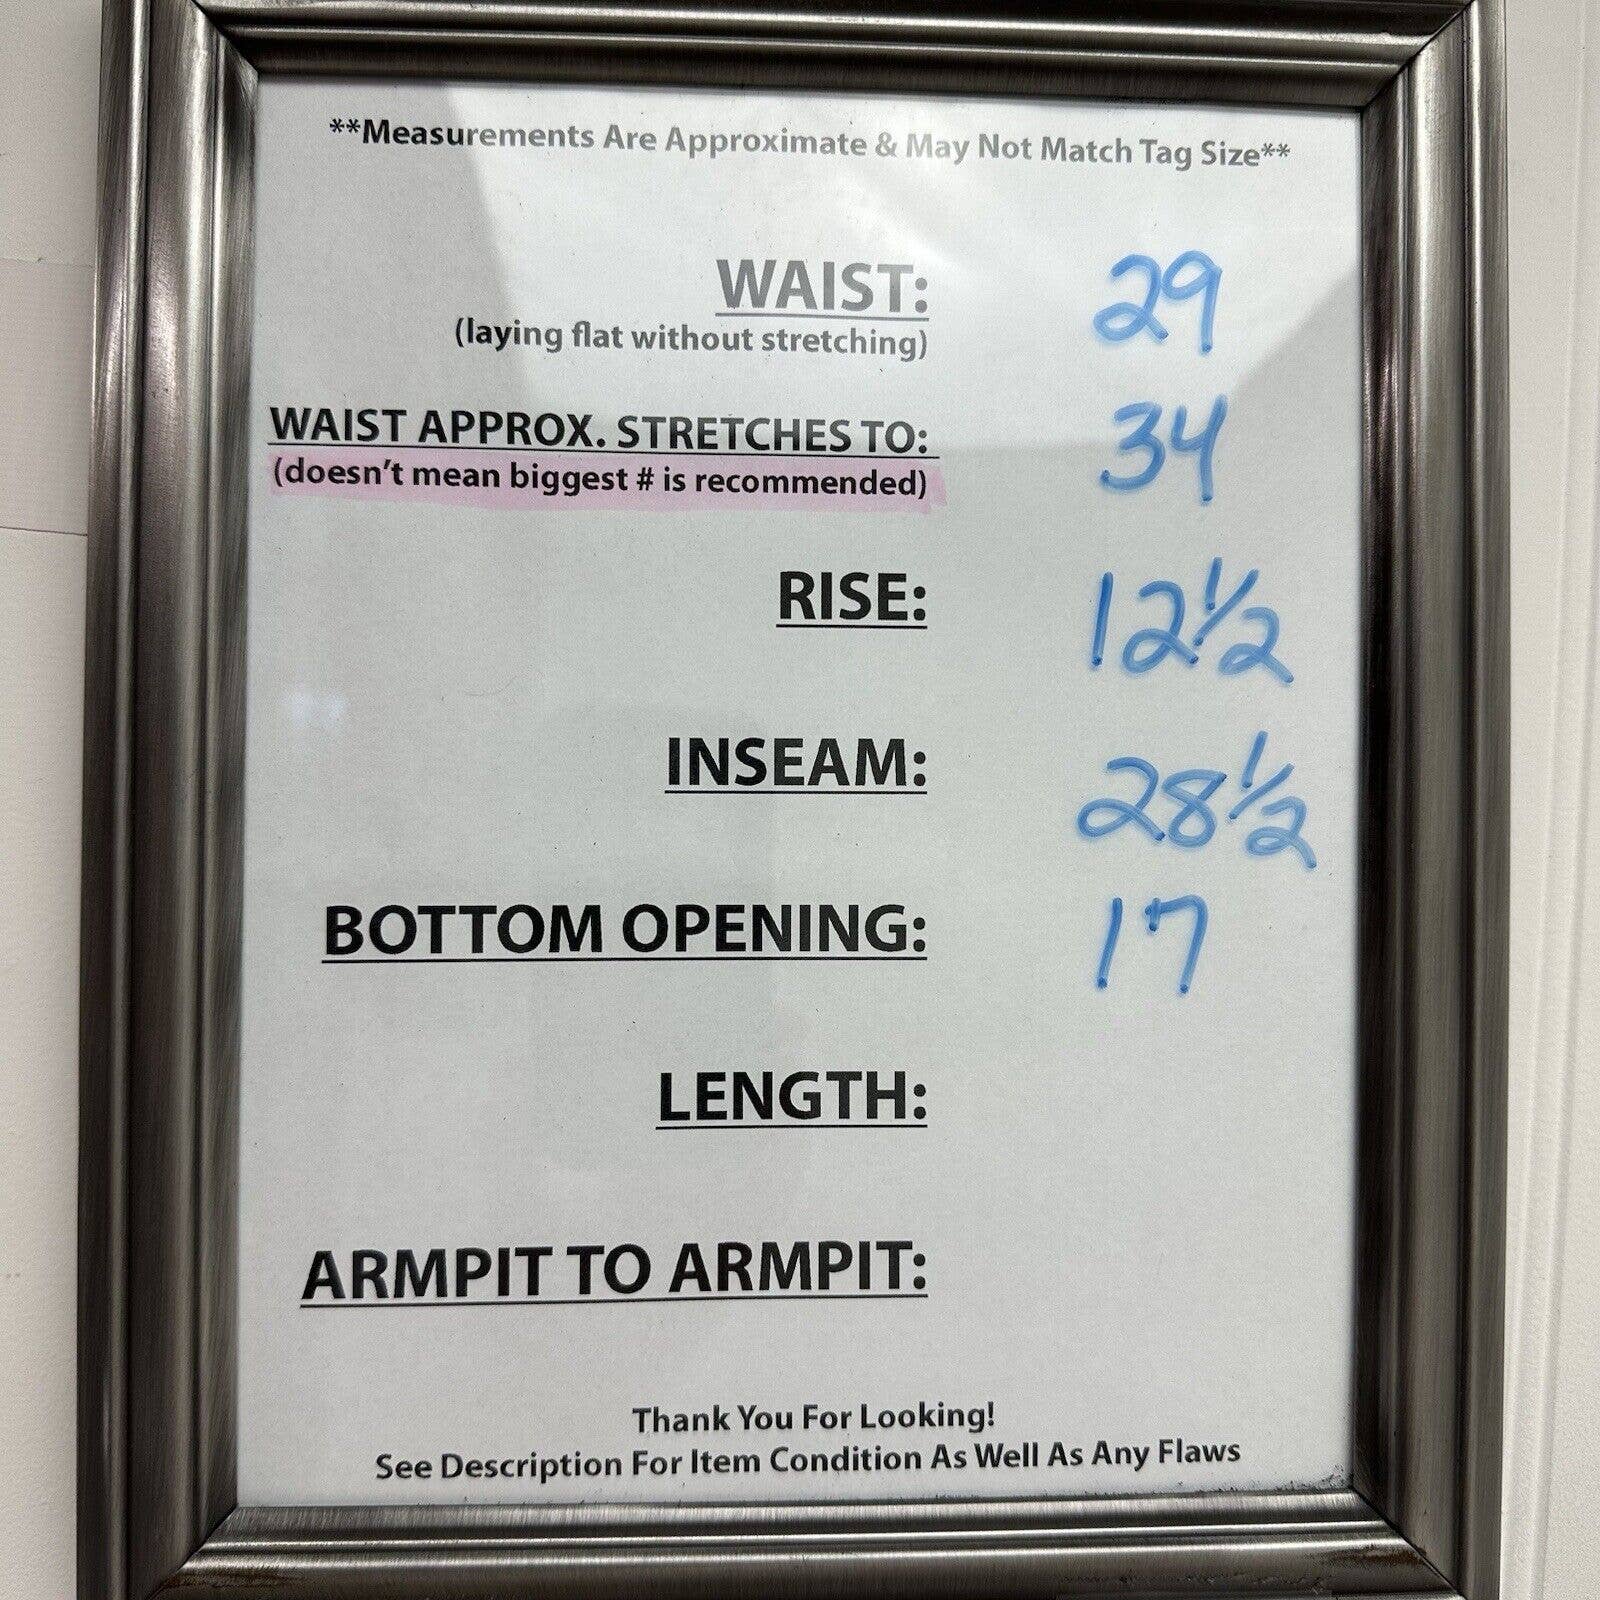 **Measurements Are Approximate & May Not Match Tag Size**
WAIST: 29
(laying flat without stretching)
WAIST APPROX. STRETCHES TO: 34
(doesn't mean biggest # is recommended)
RISE: 12 1/2
INSEAM: 28 1/2
BOTTOM OPENING: 17
LENGTH:
ARMPIT TO ARMPIT:
Thank You For Looking!
See Description For Item Condition As Well As Any Flaws